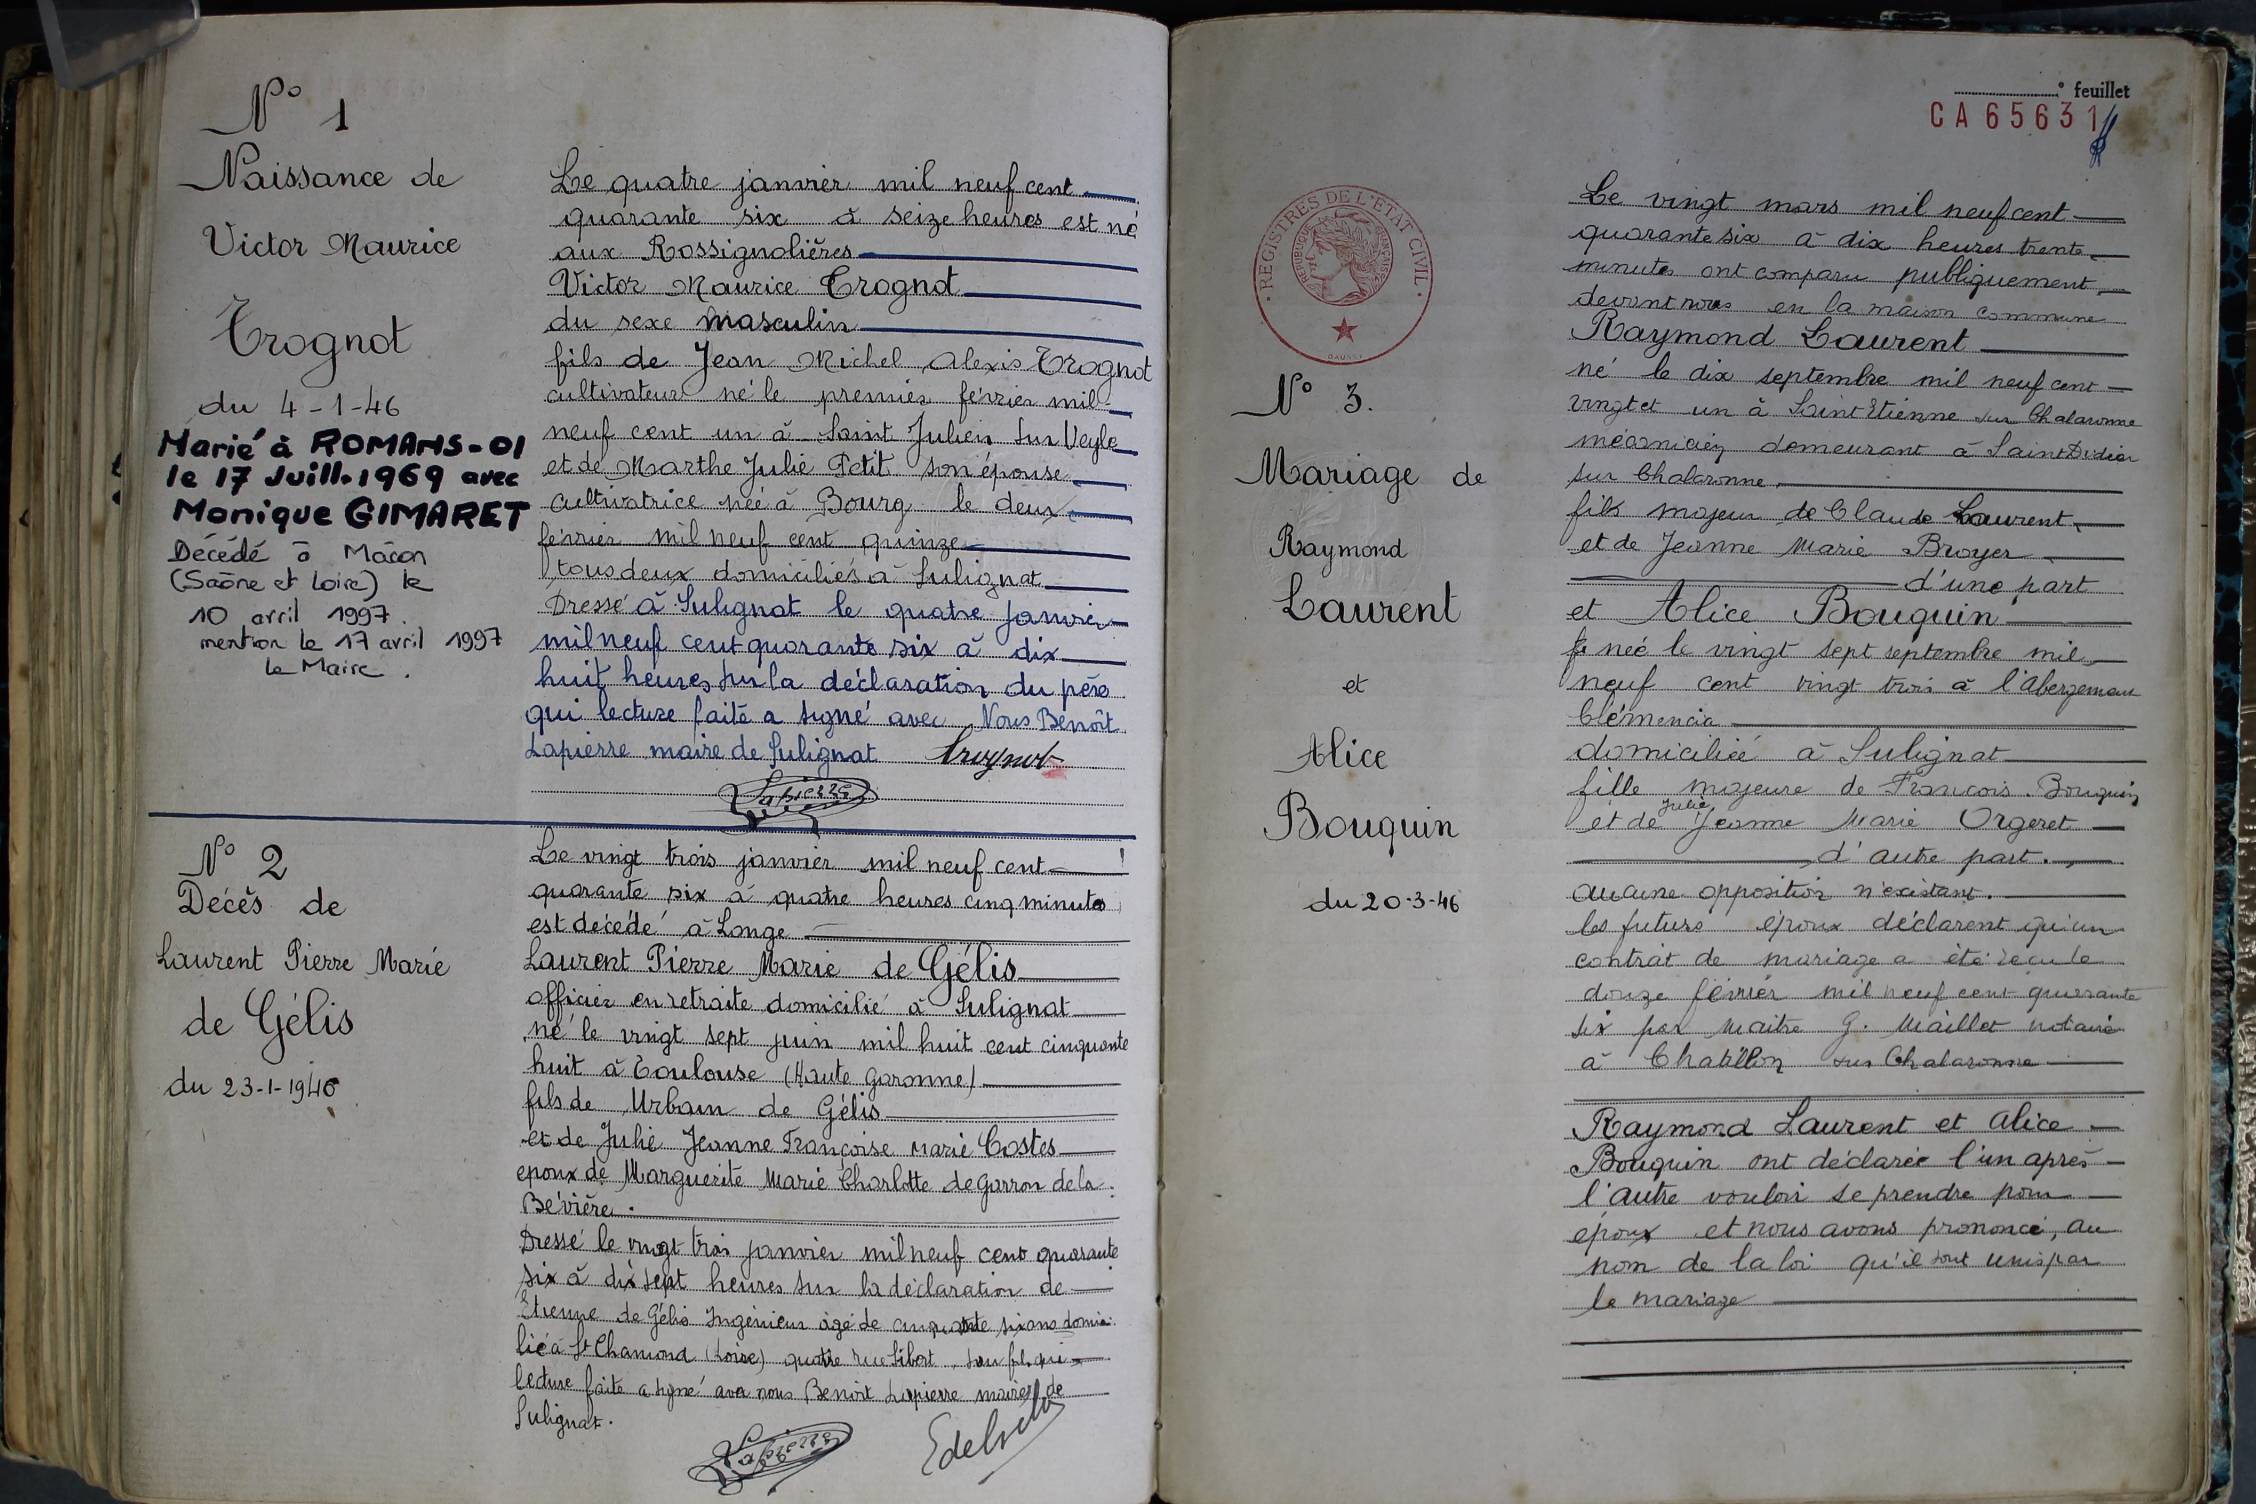 N° 1
Naissance de
Victor Maurice
Trognot
du 4-1-46
Marié à ROMANS-01
le 17 Juill. 1969 avec
Monique GIMARET
Décédé à Mâcon
(Saône et Loire) le
10 avril 1997.
mention le 17 avril 1997
Le Maire.
Le quatre janvier mil neuf cent
quarante six à seize heures est né
aux Rossignolières
Victor Maurice Trognot
du sexe masculin
fils de Jean Michel Alexis Trognot
cultivateur né le premier février mil
neuf cent un à Saint Julien sur Veyle
et de Marthe Julie Petit son épouse
cultivatrice née à Bourg le deux
février mil neuf cent quinze
tous deux domiciliés à Sulignat
Dressé à Sulignat le quatre janvier
mil neuf cent quarante six à dix
huit heures sur la déclaration du père
qui lecture faite a signé avec Nous Benoît
Lapierre maire de Sulignat Trognot
Lapierre
N° 2
Décès de
Laurent Pierre Marie
de Gélis
du 23-1-1946
Le vingt trois janvier mil neuf cent
quarante six à quatre heures cinq minutes
est décédé à Longe
Laurent Pierre Marie de Gélis
officier en retraite domicilié à Sulignat
né le vingt sept juin mil huit cent cinquante
huit à Toulouse (Haute Garonne)
fils de Urbain de Gélis
et de Julie Jeanne Françoise Marie Costes
epoux de Marguerite Marie Charlotte de Garron de la
Bévière.
Dressé le vingt trois janvier mil neuf cent quarante
six à dix sept heures sur la déclaration de
Etienne de Gélis Ingénieur âgé de cinquante six ans domici
lié à St Chamond (Loire) quatre rue Sibert son fils qui
lecture faite a signé avec nous Benoît Lapierre maire de
Sulignat.
Lapierre
EdeGélis
° feuillet
CA65631
REGISTRES DE L'ETAT CIVIL
REPUBLIQUE FRANÇAISE
N° 3.
Mariage de
Raymond
Laurent
et
Alice
Bouquin
du 20-3-46
Le vingt mars mil neuf cent
quarante six à dix heures trente
minutes ont comparu publiquement
devant nous en la maison commune
Raymond Laurent
né le dix septembre mil neuf cent
vingt et un à Saint Etienne sur Chalaronne
mécanicien demeurant à Saint Didier
sur Chalaronne
fils majeur de Claude Laurent
et de Jeanne Marie Broyer
d'une part
et Alice Bouquin
née le vingt sept septembre mil
neuf cent vingt trois à l'Abergement
Clémencia
domiciliée à Sulignat
fille majeure de François Bouquin
et de Julie Jeanne Marie Orgeret
d'autre part.
aucune opposition n'existant.
les futurs époux déclarent qu'un
contrat de mariage a été reçu le
douze février mil neuf cent quarante
six par Maitre G. Maillet notaire
à Chatillon sur Chalaronne
Raymond Laurent et Alice
Bouquin ont déclaré l'un après
l'autre vouloir se prendre pour
époux et nous avons prononcé, au
nom de la loi qu'il sont unis par
le mariage